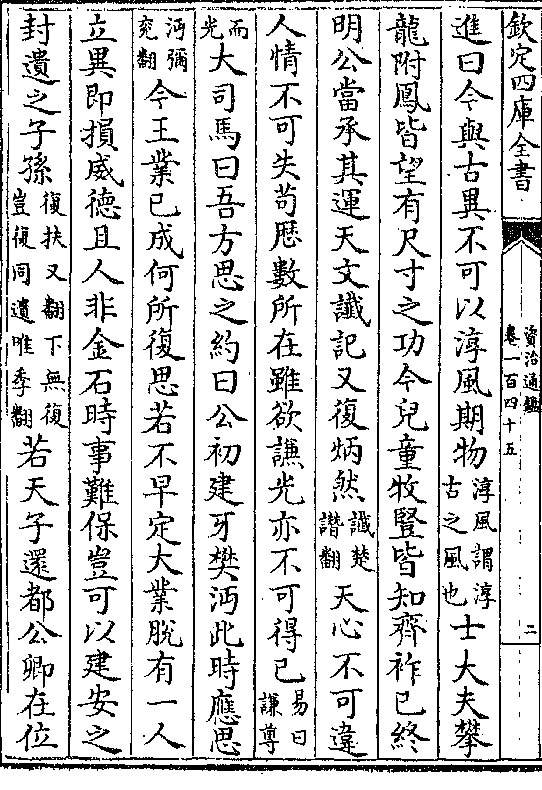 欽定四庫全書
資治通鑑
卷一百四十五
二
進曰今與古異不可以淳風期物淳風謂淳古之風也士大夫攀
龍附鳳皆望有尺寸之功今兒童牧豎皆知齊祚已終
明公當承其運天文讖記又復炳然讖楚譖翻天心不可違
人情不可失苟厯數所在雖欲謙光亦不可得已易曰謙尊
而光大司馬曰吾方思之約曰公初建牙樊沔此時應思
沔彌兗翻今王業已成何所復思若不早定大業脫有一人
立異即損威德且人非金石時事難保豈可以建安之
封遺之子孫復扶又翻下無復豈復同遺唯季翻若天子還都公卿在位